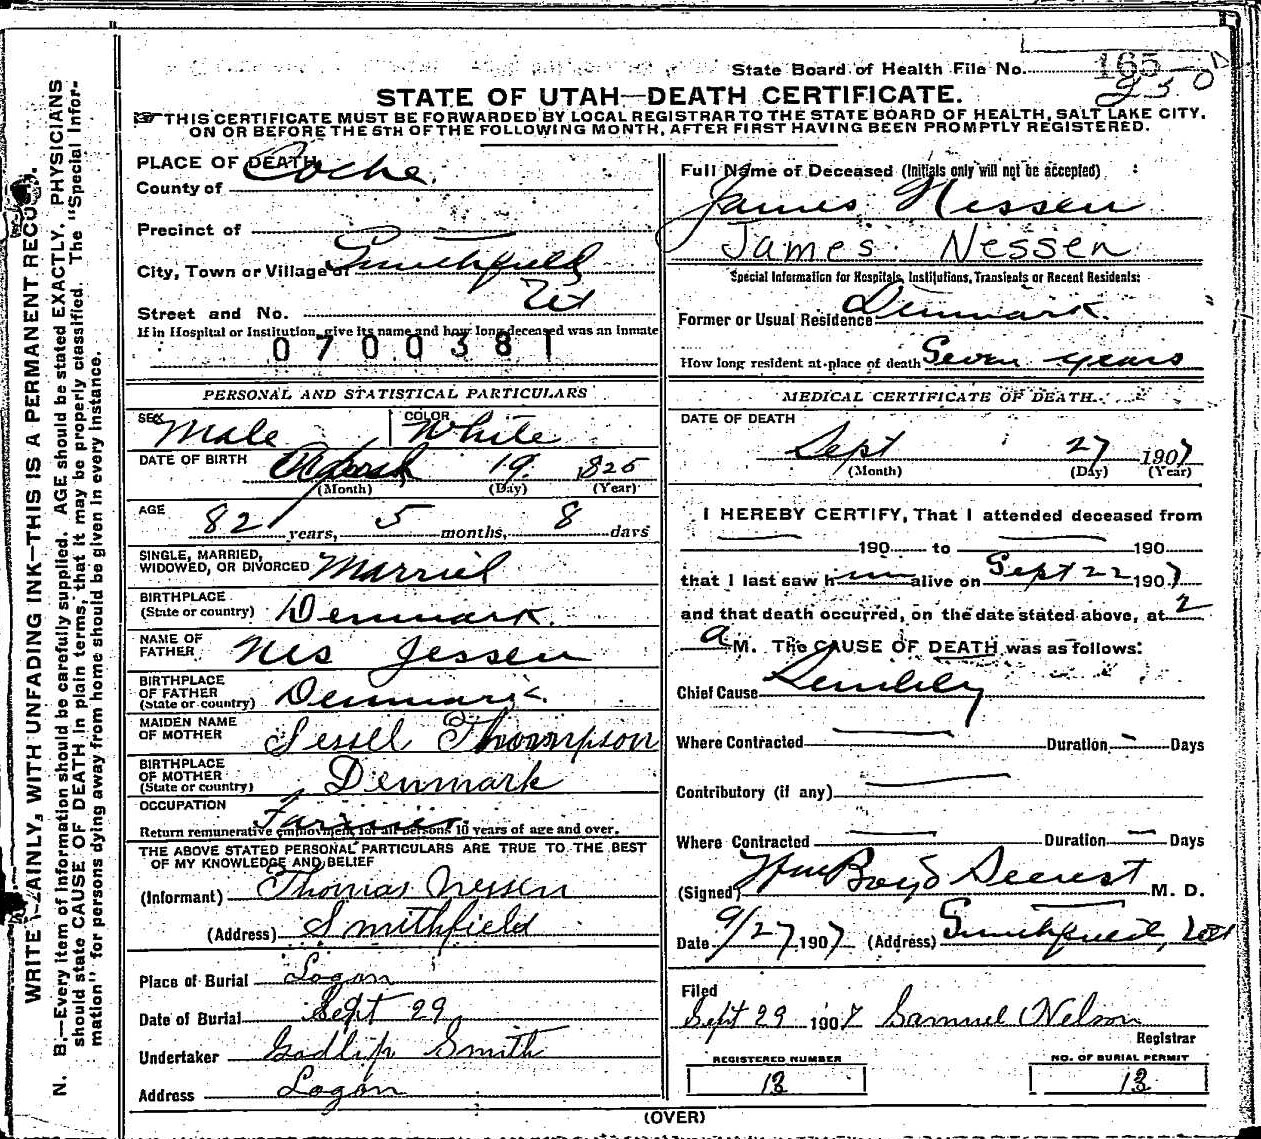 State Board of Health File No. 165
230
STATE OF UTAH—DEATH CERTIFICATE.
THIS CERTIFICATE MUST BE FORWARDED BY LOCAL REGISTRAR TO THE STATE BOARD OF HEALTH, SALT LAKE CITY,
ON OR BEFORE THE 5TH OF THE FOLLOWING MONTH, AFTER FIRST HAVING BEEN PROMPTLY REGISTERED.
WRITE PLAINLY, WITH UNFADING INK—THIS IS A PERMANENT RECORD.
N. B.—Every item of information should be carefully supplied. AGE should be stated EXACTLY. PHYSICIANS
should state CAUSE OF DEATH in plain terms, that it may be properly classified. The "Special Infor-
mation" for persons dying away from home should be given in every instance.
PLACE OF DEATH
County of Cache
Precinct of
City, Town or Village of Smithfield
Street and No. Ut
If in Hospital or Institution, give its name and how long deceased was an inmate
0700381
PERSONAL AND STATISTICAL PARTICULARS
SEX Male COLOR White
DATE OF BIRTH 19 1825
(Month) (Day) (Year)
AGE 82 years, 5 months, 8 days
SINGLE, MARRIED,
WIDOWED, OR DIVORCED Married
BIRTHPLACE
(State or country) Denmark.
NAME OF
FATHER Nis Jessen
BIRTHPLACE
OF FATHER
(State or country) Denmark
MAIDEN NAME
OF MOTHER Sessel Thompson
BIRTHPLACE
OF MOTHER
(State or country) Denmark
OCCUPATION Farmer
Return remunerative employment for all persons 10 years of age and over.
THE ABOVE STATED PERSONAL PARTICULARS ARE TRUE TO THE BEST
OF MY KNOWLEDGE AND BELIEF
(Informant) Thomas Nessen
(Address) Smithfield
Place of Burial Logan
Date of Burial Sept 29
Undertaker Godlip Smith
Address Logan
Full Name of Deceased (Initials only will not be accepted)
James Nessen
James Nessen
Special Information for Hospitals, Institutions, Transients or Recent Residents:
Former or Usual Residence Denmark.
How long resident at place of death Seven years
MEDICAL CERTIFICATE OF DEATH.
DATE OF DEATH
Sept 27 1907
(Month) (Day) (Year)
I HEREBY CERTIFY, That I attended deceased from
190 to 190
that I last saw him alive on Sept 22 1907
and that death occurred, on the date stated above, at 2
a M. The CAUSE OF DEATH was as follows:
Chief Cause Senility
Where Contracted Duration Days
Contributory (if any)
Where Contracted Duration Days
(Signed) Wm Boyd Secrest M. D.
Date 9/27 1907 (Address) Smithfield, Utah
Filed
Sept 29 1907 Samuel Nelson
Registrar
REGISTERED NUMBER
13
NO. OF BURIAL PERMIT
13
(OVER)